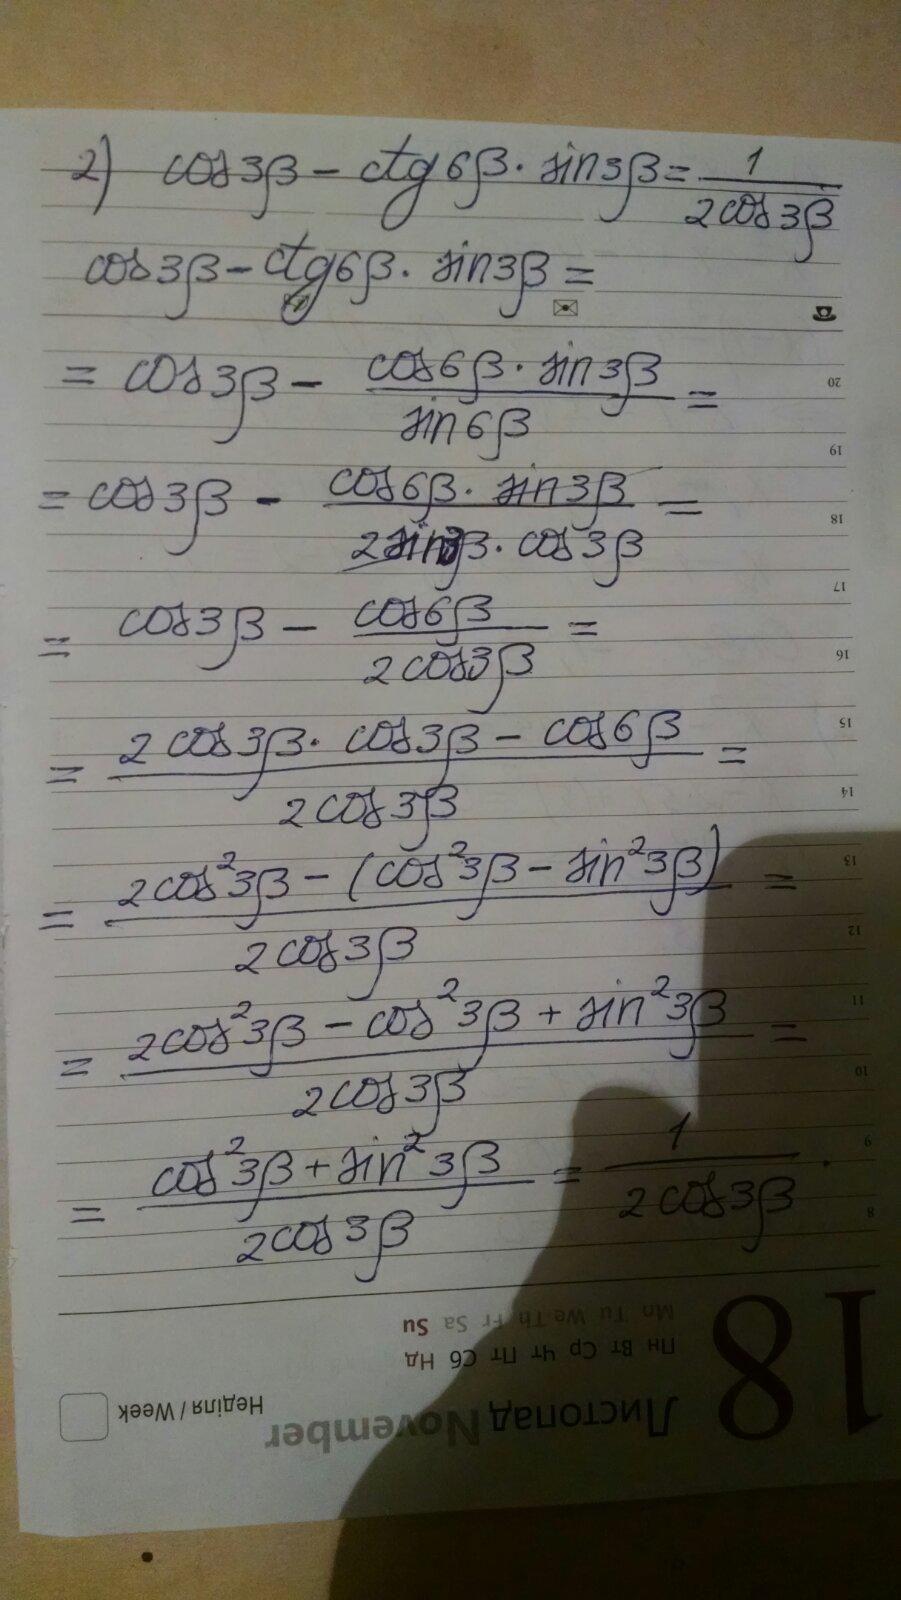 2) cos3β - ctg6β · sin3β = 1/(2cos3β)
cos3β - ctg6β · sin3β =
= cos3β - (cos6β · sin3β)/(sin6β) =
= cos3β - (cos6β · sin3β)/(2sin3β · cos3β) =
= cos3β - (cos6β)/(2cos3β) =
= (2cos3β · cos3β - cos6β)/(2cos3β) =
= (2cos²3β - (cos²3β - sin²3β))/(2cos3β) =
= (2cos²3β - cos²3β + sin²3β)/(2cos3β) =
= (cos²3β + sin²3β)/(2cos3β) = 1/(2cos3β).
20
19
18
17
16
15
14
13
12
11
10
9
8
18
Mn Tu We Th Fr Sa Su
Пн Вт Ср Чт Пт Сб Нд
Листопад November
Неділя / Week